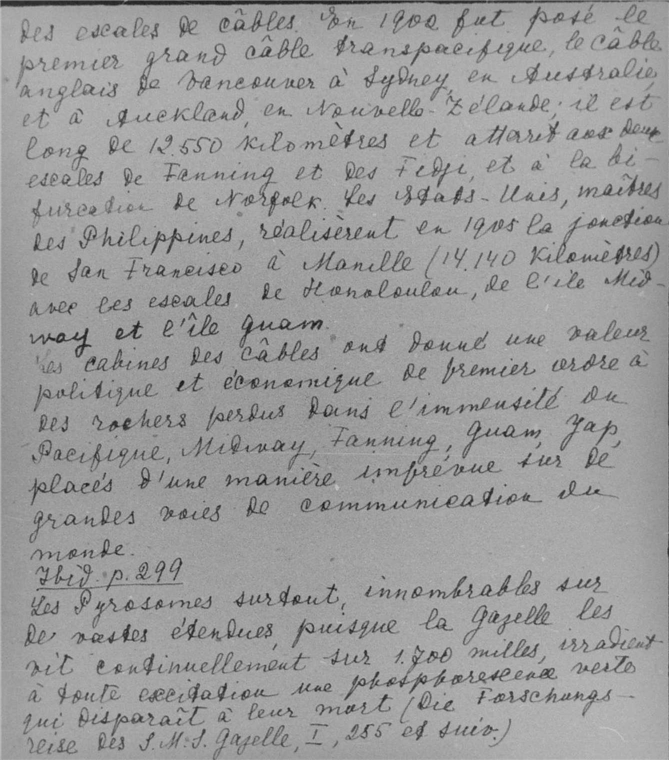 des escales de câbles. En 1902 fut posé le
premier grand câble transpacifique, le câble
anglais de Vancouver à Sydney, en Australie,
et à Auckland, en Nouvelle-Zélande; il est
long de 12550 kilomètres et atterrit aux deux
escales de Fanning et des Fidji, et à la bi-
furcation de Norfolk. Les Etats-Unis, maîtres
des Philippines, réalisèrent en 1905 la jonction
de San Francisco à Manille (14.140 kilomètres)
avec les escales de Honoloulou, de l'île Mid-
way et l'île Guam.
Les cabines des câbles ont donné une valeur
politique et économique de premier ordre à
des rochers perdus dans l'immensité du
Pacifique, Midway, Fanning, Guam, Yap,
placés d'une manière imprévue sur de
grandes voies de communication du
monde.
Ibid. p. 299
Les Pyrosomes surtout, innombrables sur
de vastes étendues, puisque la Gazelle les
vit continuellement sur 1.700 milles, irradient
à toute excitation une phosphorescence verte
qui disparaît à leur mort (Die Forschungs-
reise des S.M.S. Gazelle, I, 255 et suiv.)